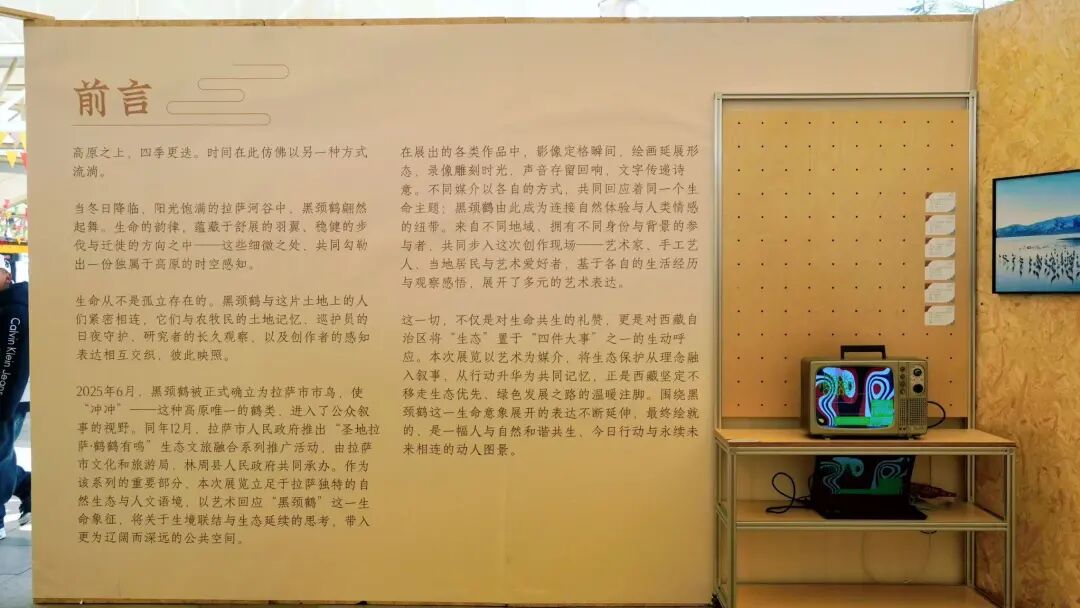 前言
高原之上，四季更迭。时间在此仿佛以另一种方式
流淌。
当冬日降临，阳光饱满的拉萨河谷中，黑颈鹤翩然
起舞。生命的韵律，蕴藏于舒展的羽翼、稳健的步
伐与迁徙的方向之中——这些细微之处，共同勾勒
出一份独属于高原的时空感知。
生命从不是孤立存在的。黑颈鹤与这片土地上的人
们紧密相连，它们与农牧民的土地记忆、巡护员的
日夜守护、研究者的长久观察，以及创作者的感知
表达相互交织，彼此映照。
2025年6月，黑颈鹤被正式确立为拉萨市市鸟，使
“冲冲”——这种高原唯一的鹤类，进入了公众叙
事的视野。同年12月，拉萨市人民政府推出“圣地拉
萨·鹤鹤有鸣”生态文旅融合系列推广活动，由拉萨
市文化和旅游局，林周县人民政府共同承办。作为
该系列的重要部分，本次展览立足于拉萨独特的自
然生态与人文语境，以艺术回应“黑颈鹤”这一生
命象征，将关于生境联结与生态延续的思考，带入
更为辽阔而深远的公共空间。
在展出的各类作品中，影像定格瞬间，绘画延展形
态，录像雕刻时光，声音存留回响，文字传递诗
意。不同媒介以各自的方式，共同回应着同一个生
命主题；黑颈鹤由此成为连接自然体验与人类情感
的纽带。来自不同地域、拥有不同身份与背景的参
与者，共同步入这次创作现场——艺术家、手工艺
人、当地居民与艺术爱好者，基于各自的生活经历
与观察感悟，展开了多元的艺术表达。
这一切，不仅是对生命共生的礼赞，更是对西藏自
治区将“生态”置于“四件大事”之一的生动呼
应。本次展览以艺术为媒介，将生态保护从理念融
入叙事，从行动升华为共同记忆，正是西藏坚定不
移走生态优先、绿色发展之路的温暖注脚。围绕黑
颈鹤这一生命意象展开的表达不断延伸，最终绘就
的，是一幅人与自然和谐共生、今日行动与永续未
来相连的动人图景。
Calvin Klein Jeans